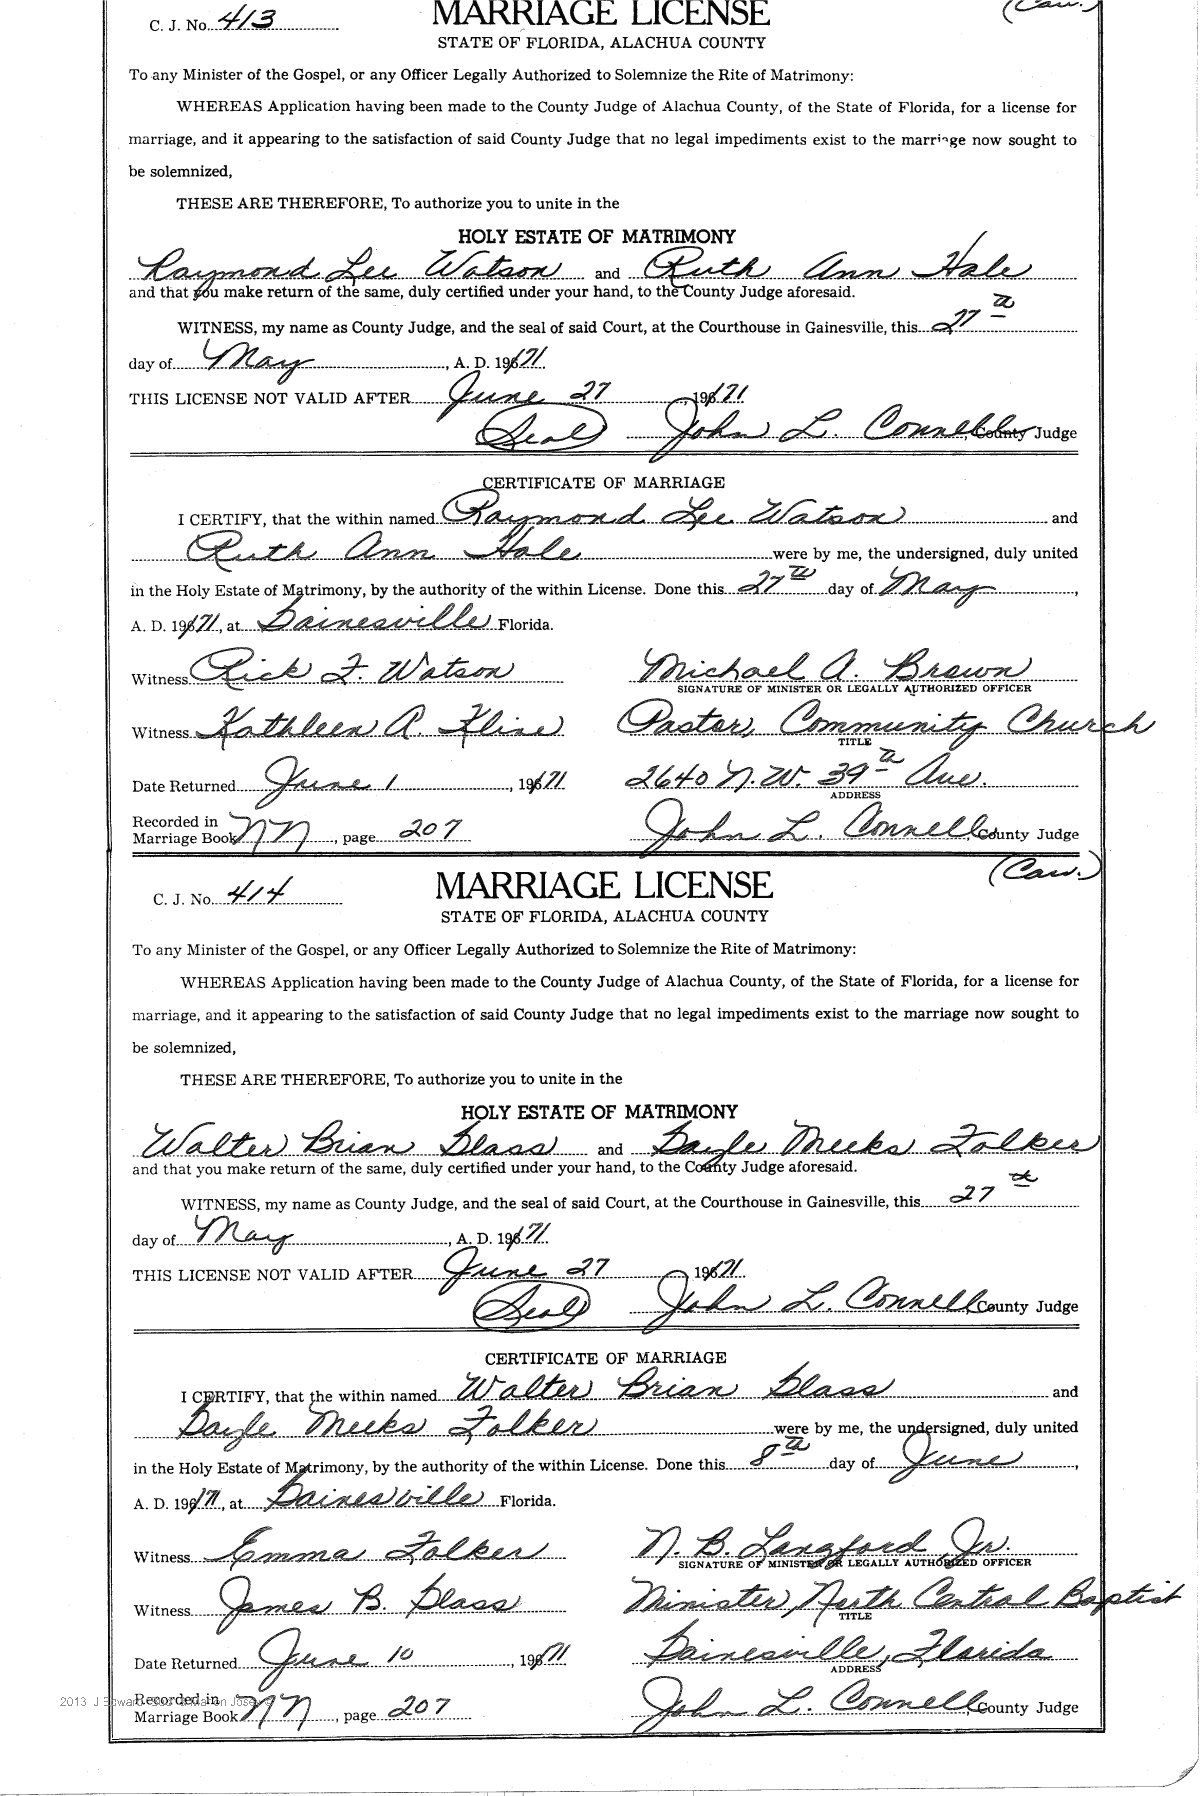 (Cau.)
C. J. No. 413 MARRIAGE LICENSE
STATE OF FLORIDA, ALACHUA COUNTY
To any Minister of the Gospel, or any Officer Legally Authorized to Solemnize the Rite of Matrimony:
WHEREAS Application having been made to the County Judge of Alachua County, of the State of Florida, for a license for
marriage, and it appearing to the satisfaction of said County Judge that no legal impediments exist to the marriage now sought to
be solemnized,
THESE ARE THEREFORE, To authorize you to unite in the
HOLY ESTATE OF MATRIMONY
Raymond Lee Watson and Ruth Ann Hale
and that you make return of the same, duly certified under your hand, to the County Judge aforesaid.
WITNESS, my name as County Judge, and the seal of said Court, at the Courthouse in Gainesville, this 27th
day of May, A. D. 1971.
THIS LICENSE NOT VALID AFTER June 27, 1971
(Seal) John L. Connell, County Judge
CERTIFICATE OF MARRIAGE
I CERTIFY, that the within named Raymond Lee Watson and
Ruth Ann Hale were by me, the undersigned, duly united
in the Holy Estate of Matrimony, by the authority of the within License. Done this 27th day of May,
A. D. 1971, at Gainesville Florida.
Witness Rick F. Watson Michael A. Brown
SIGNATURE OF MINISTER OR LEGALLY AUTHORIZED OFFICER
Witness Kathleen R. Kline Pastor, Community Church
TITLE
Date Returned June 1, 1971 2640 N.W. 39th Ave.
ADDRESS
Recorded in
Marriage Book NN, page 207 John L. Connell, County Judge
(Cau.)
C. J. No. 414 MARRIAGE LICENSE
STATE OF FLORIDA, ALACHUA COUNTY
To any Minister of the Gospel, or any Officer Legally Authorized to Solemnize the Rite of Matrimony:
WHEREAS Application having been made to the County Judge of Alachua County, of the State of Florida, for a license for
marriage, and it appearing to the satisfaction of said County Judge that no legal impediments exist to the marriage now sought to
be solemnized,
THESE ARE THEREFORE, To authorize you to unite in the
HOLY ESTATE OF MATRIMONY
Walter Brian Glass and Gayle Meeks Folker
and that you make return of the same, duly certified under your hand, to the County Judge aforesaid.
WITNESS, my name as County Judge, and the seal of said Court, at the Courthouse in Gainesville, this 27th
day of May, A. D. 1971.
THIS LICENSE NOT VALID AFTER June 27 1971
(Seal) John L. Connell, County Judge
CERTIFICATE OF MARRIAGE
I CERTIFY, that the within named Walter Brian Glass and
Gayle Meeks Folker were by me, the undersigned, duly united
in the Holy Estate of Matrimony, by the authority of the within License. Done this 8th day of June,
A. D. 1971, at Gainesville Florida.
Witness Emma Folker N. B. Langford Jr.
SIGNATURE OF MINISTER OR LEGALLY AUTHORIZED OFFICER
Witness James B. Glass Minister, North Central Baptist
TITLE
Date Returned June 10, 1971 Gainesville, Florida
ADDRESS
Recorded in
Marriage Book NN, page 207 John L. Connell, County Judge
2013 J Edward